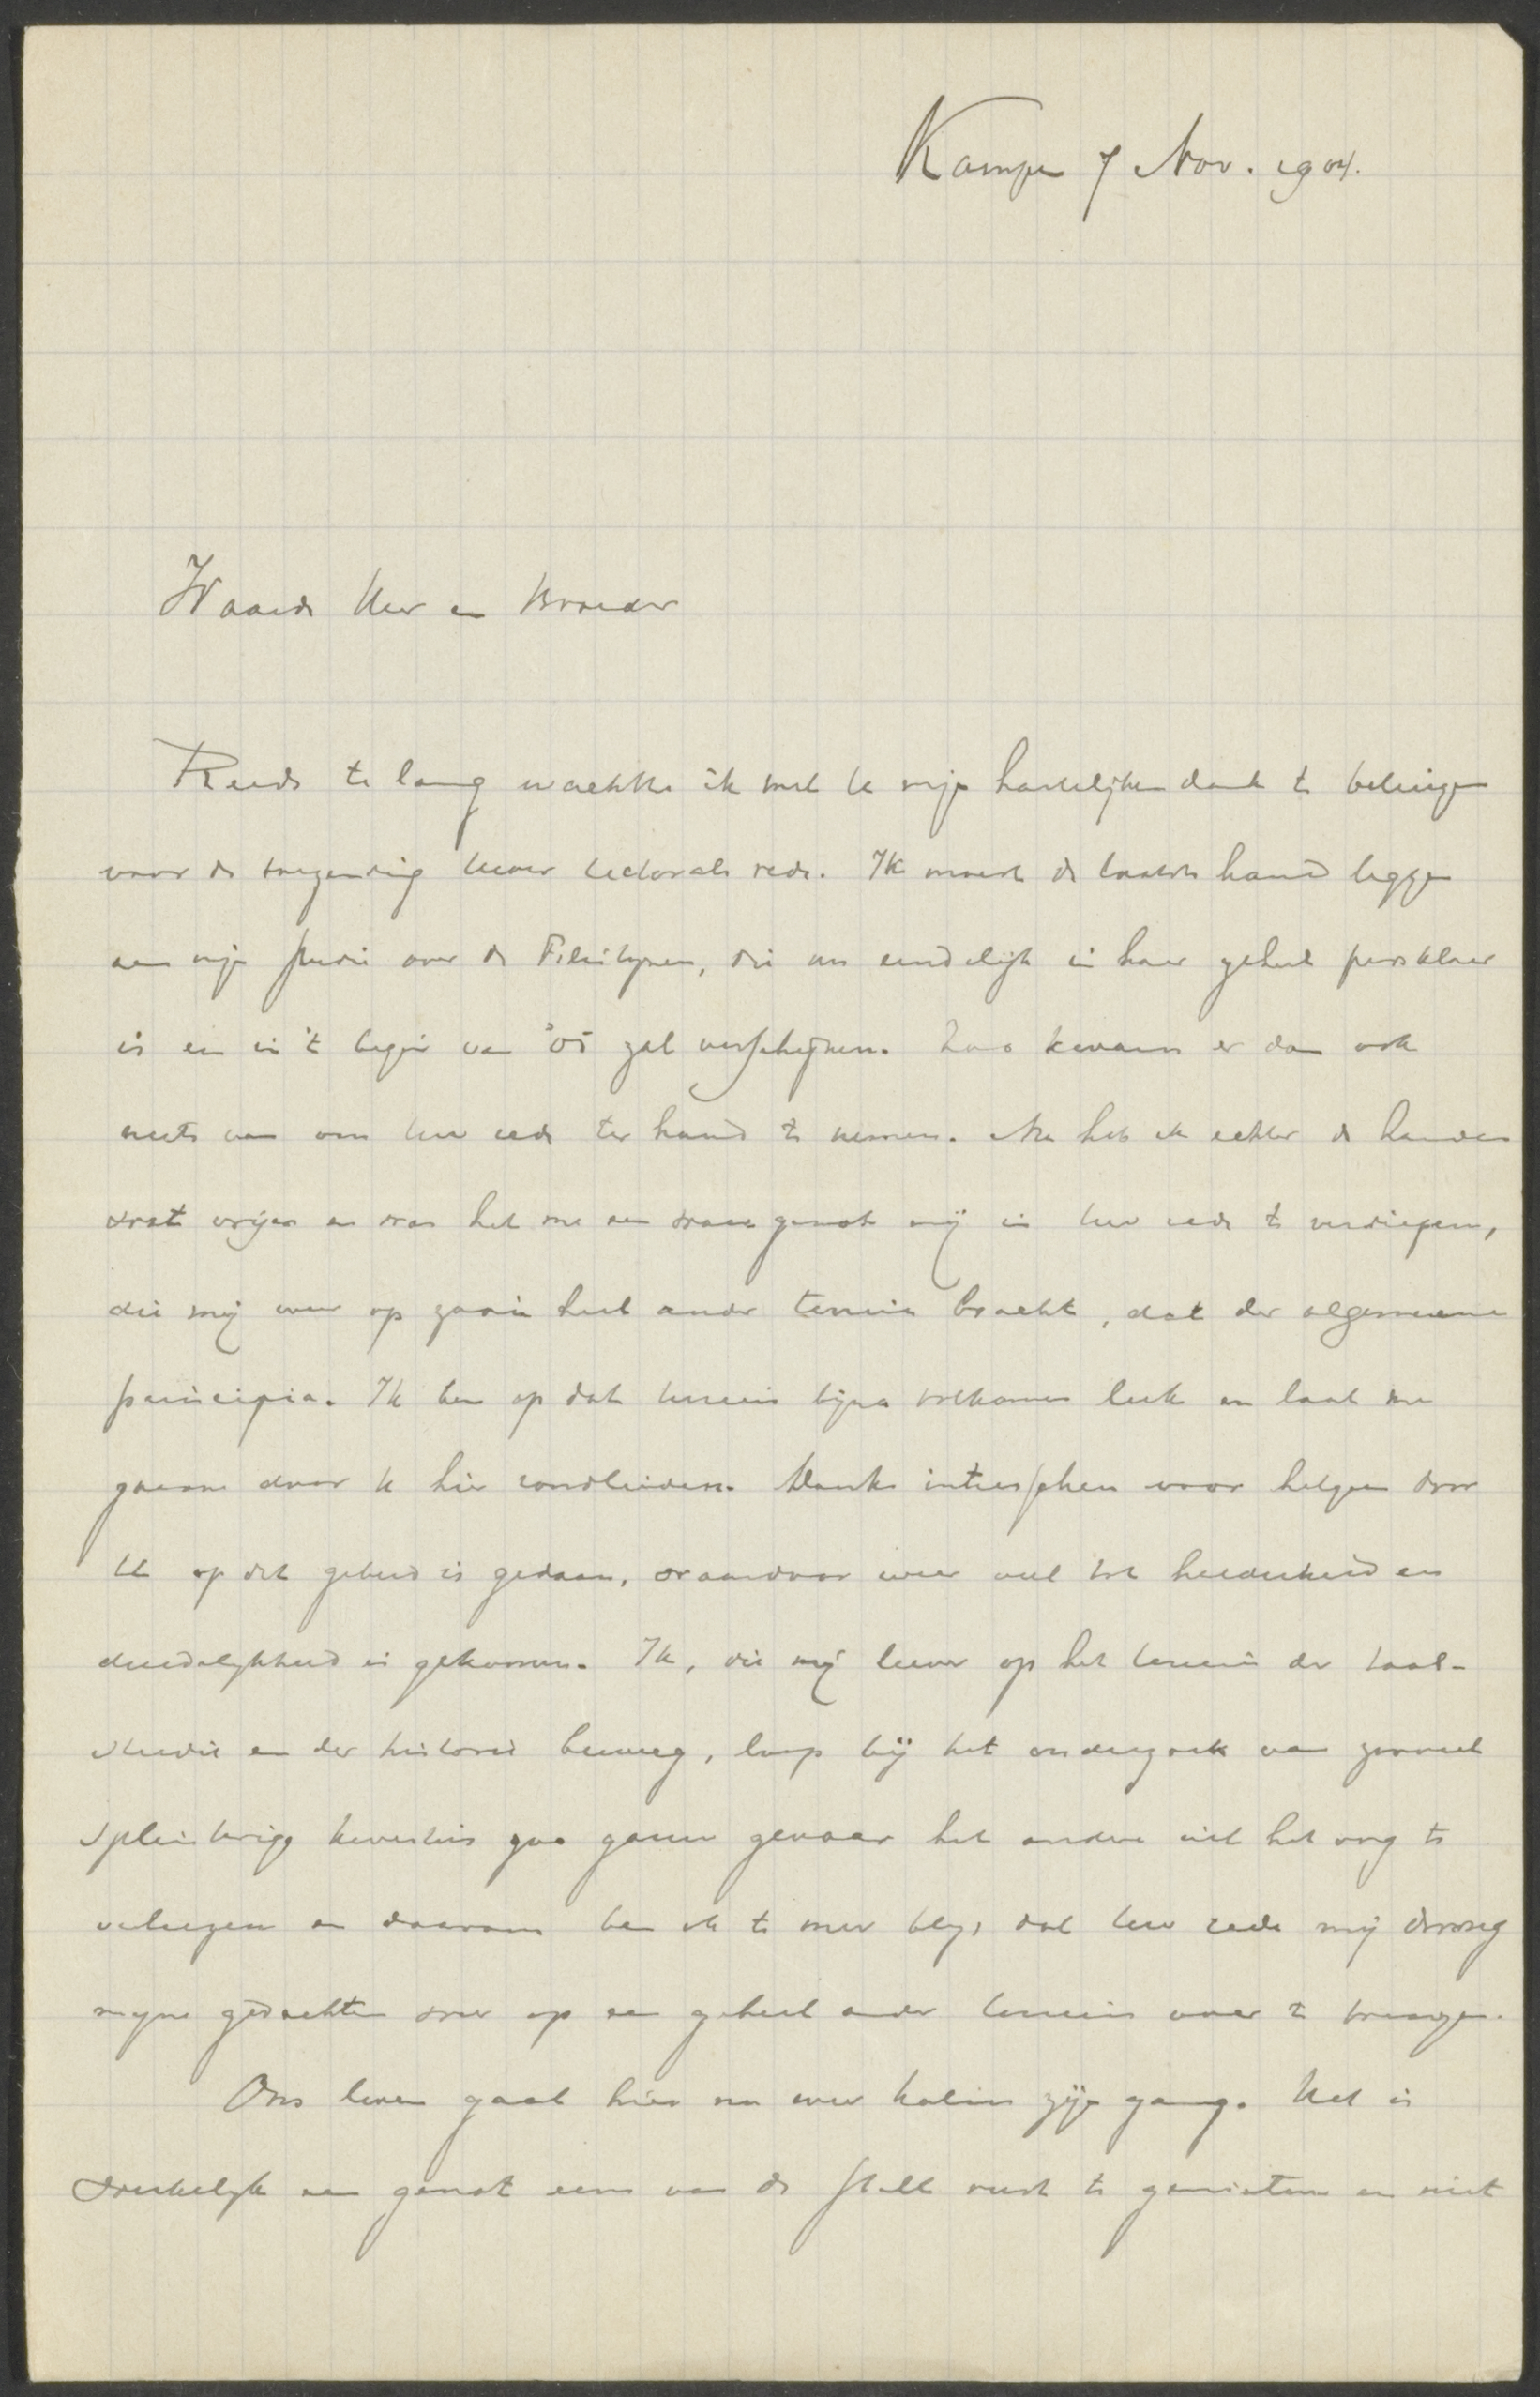 Kampen 7 Nov. 1904.
Waarde Heer en Broeder
Reeds te lang wachtte ik met U mijn hartelijken dank te betuigen
voor de toezending Uwer rectorale rede. Ik moest de laatste hand leggen
aan mijn studie over de Filistijnen, die nu eindelijk in haar geheel persklaar
is en in 't begin van '05 zal verschijnen. Zoo kwam er dan ook
niets van om Uw rede ter hand te nemen. Nu heb ik echter de handen
wat vrijer en was het me een waar genot mij in Uw rede te verdiepen,
die mij weer op zoo'n heel ander terrein bracht, dat der algemeene
principia. Ik ben op dat terrein bijna volkomen leek en laat me
gaarne door U hier rondleiden. Dank intusschen voor hetgeen door
U op dit gebied is gedaan, waardoor weer veel tot helderheid en
duidelijkheid is gekomen. Ik, die mij liever op het terrein der taal-
studie en der historie beweeg, loop bij het onderzoek van zooveel
splinterige kwesties zoo gauw gevaar het andere uit het oog te
verliezen en daarom ben ik te meer blij, dat Uw rede mij drong
mijne gedachten weer op een geheel ander terrein over te brengen.
Ons leven gaat hier nu weer kalm zijn gang. Het is
werkelijk een genot eens van de stille rust te genieten en niet